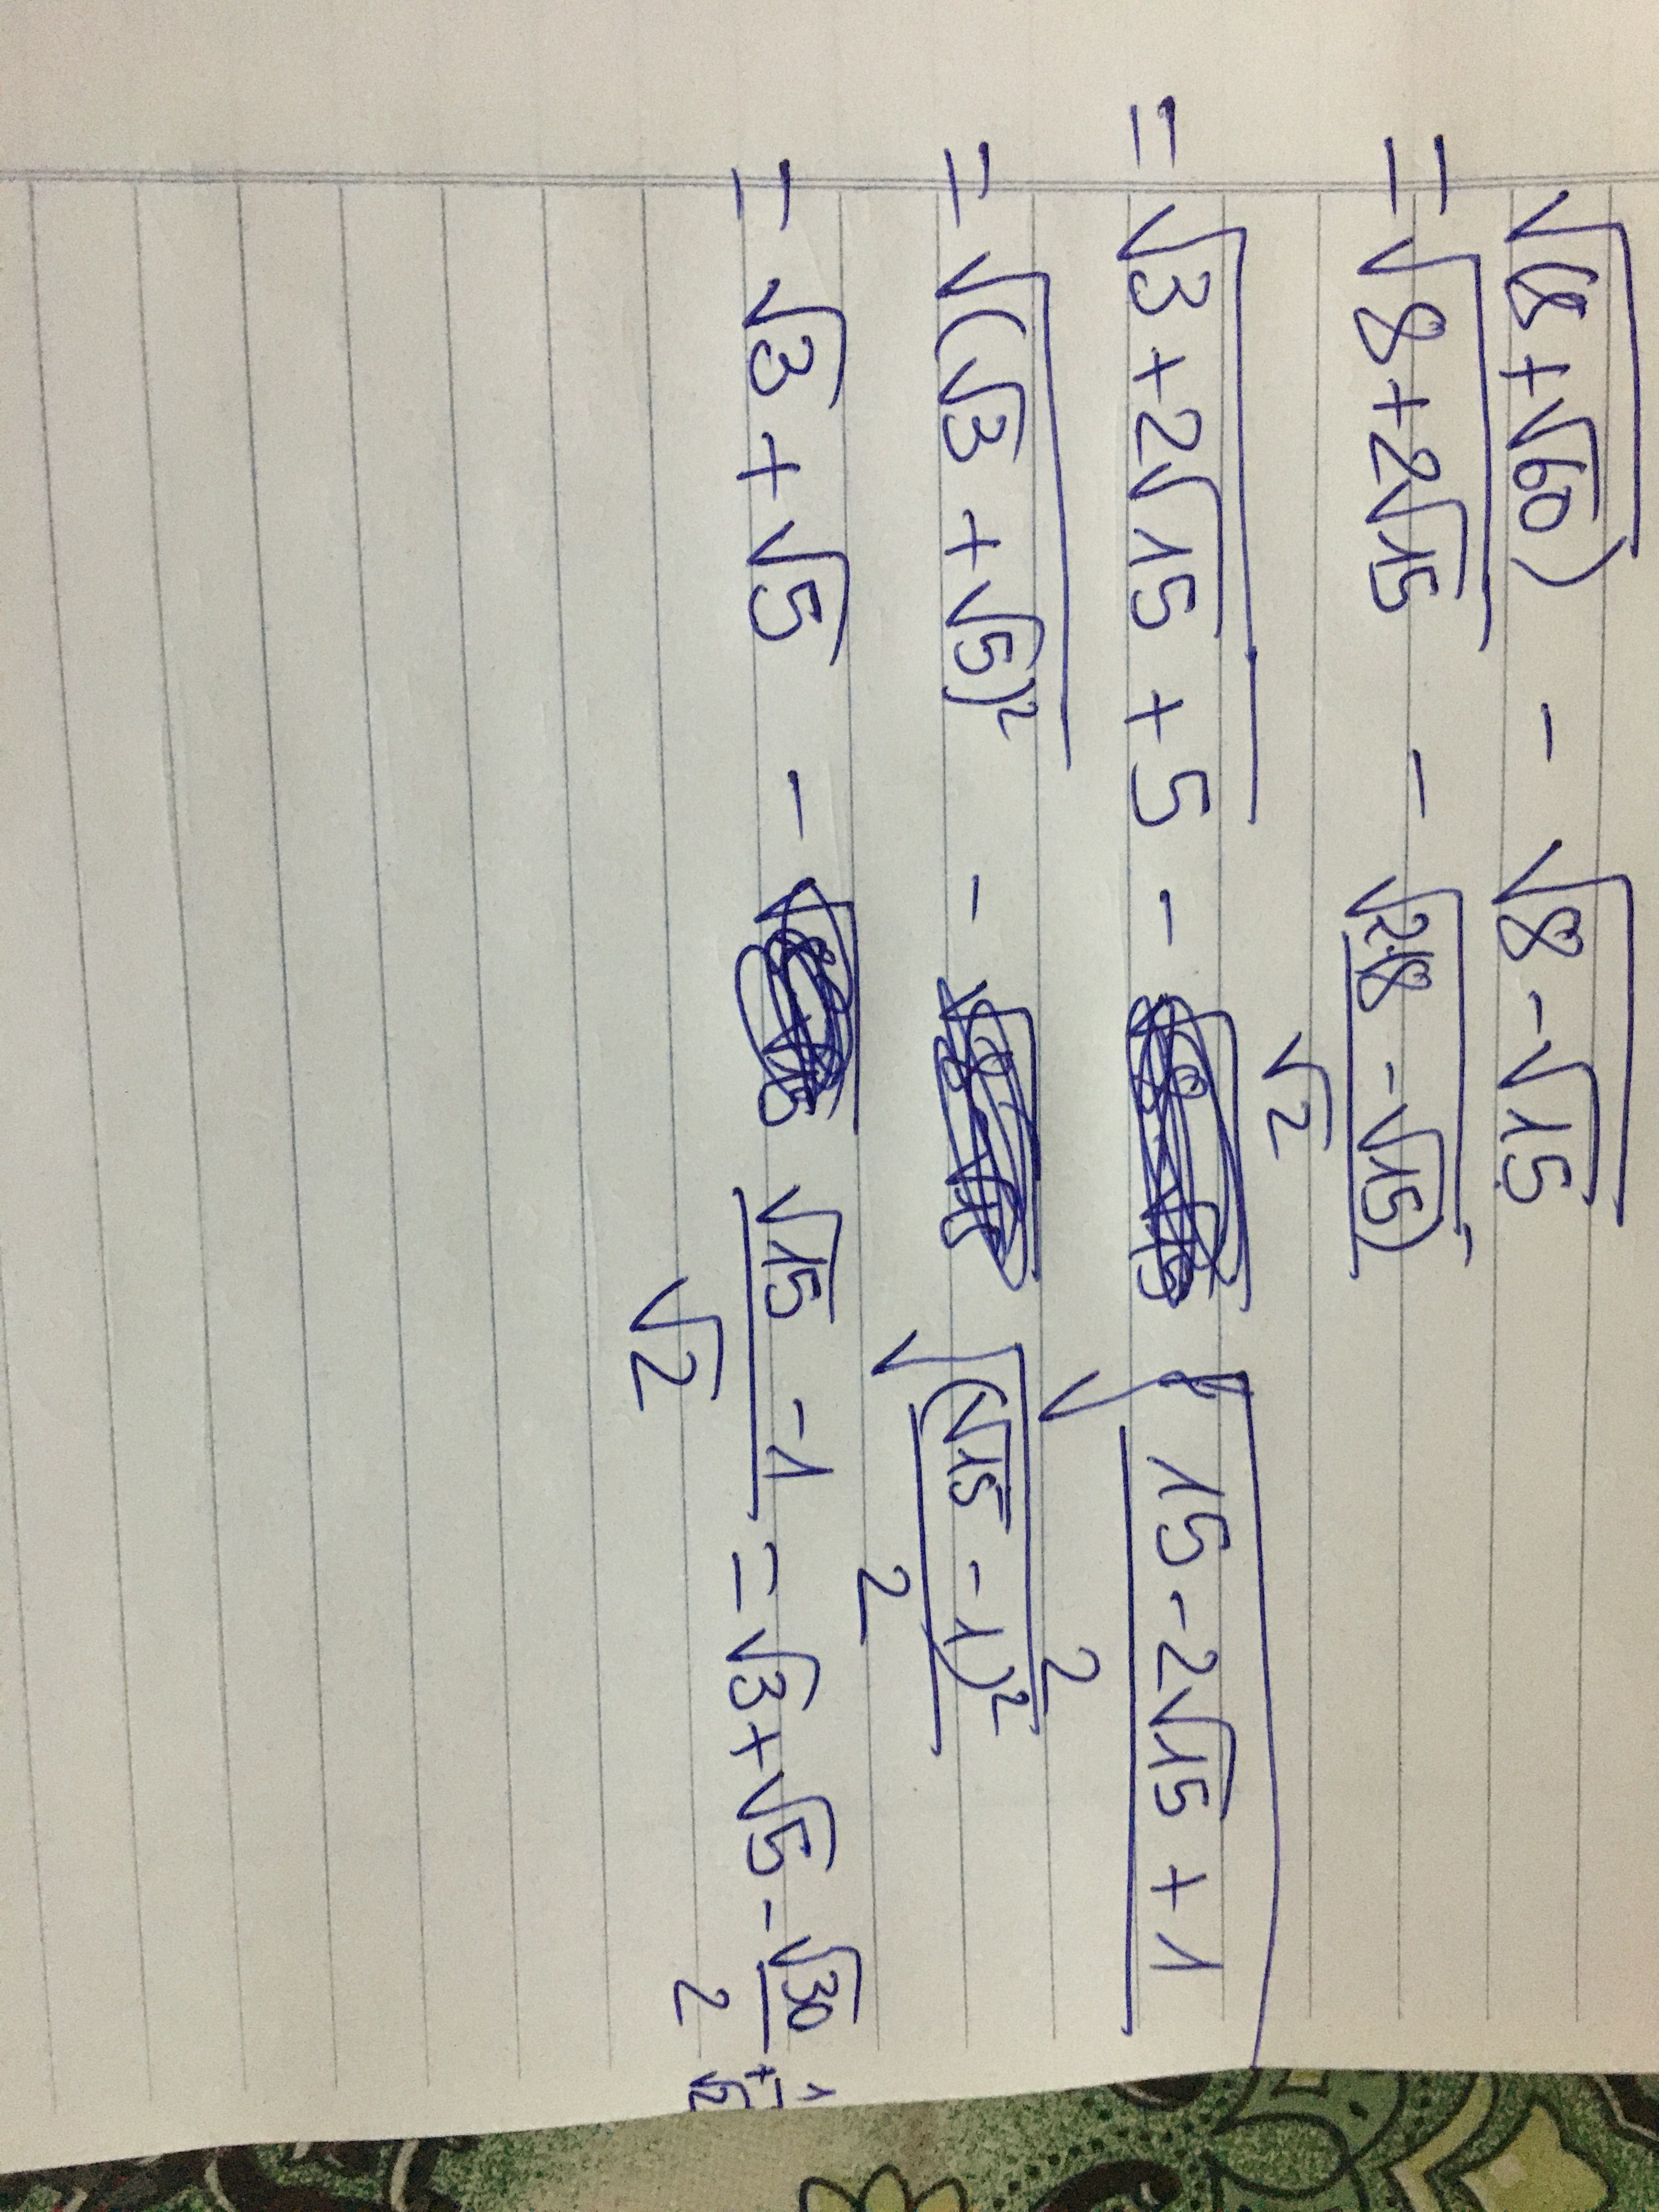 √(8+√60) - √8-√15
= √8+2√15 - √2(8-√15)/√2
= √3+2√15+5 - √15-2√15+1/2
= √(√3+√5)² - √(√15-1)²/2
= √3+√5 - √15-1/√2 = √3+√5-√30/2+1/√2